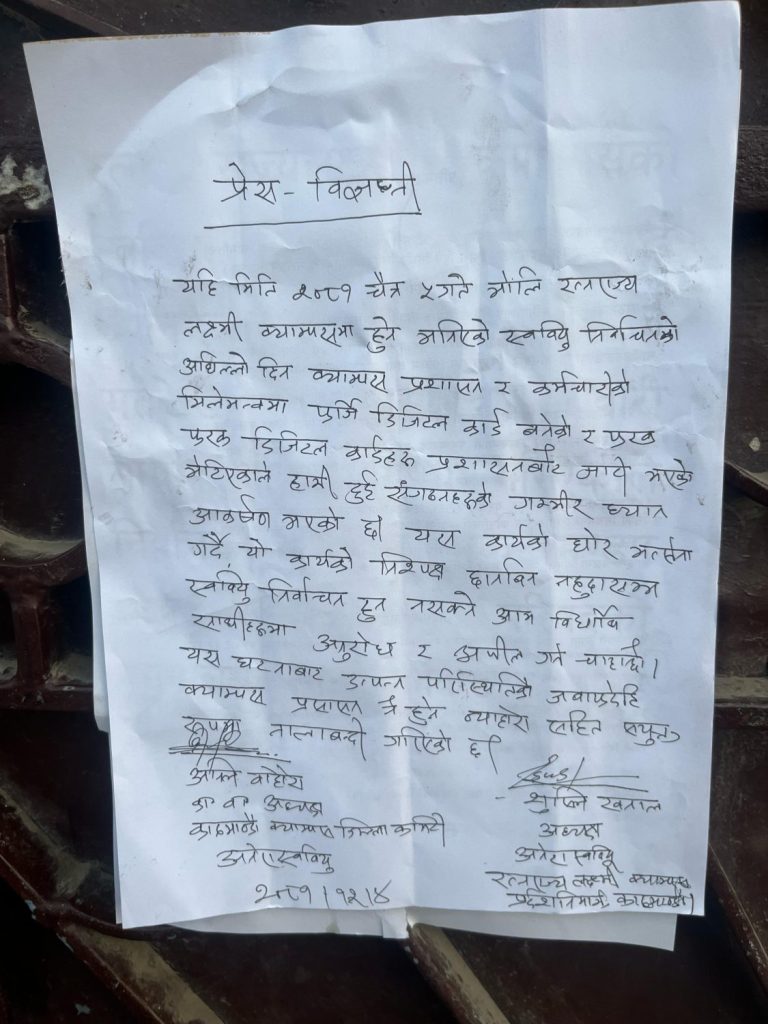 प्रेस - विज्ञप्ती
यहि मिति २०८१ चैत्र ५ गते भोलि रत्नराज्य
लक्ष्मी क्याम्पसमा हुन भनिएको स्ववियु निर्वाचनको
अघिल्लो दिन क्याम्पस प्रशासन र कर्मचारीको
मिलेमतोमा फर्जि डिजिटल कार्ड बनेको र फरक
फरक डिजिटल कार्डहरू प्रशासनबाट जारी भएको
भेटिएकाले हामी दुई संगठनहरूको गम्भीर ध्यान
आकर्षण भएको छ। यस कार्यको घोर भर्त्सना
गर्दै, यो कार्यको निष्पक्ष छानबिन नहुदासम्म
स्ववियु निर्वाचन हुन नसक्ने आम विद्यार्थि
साथीहरूमा अनुरोध र अपील गर्न चाहान्छौ।
यस घटनाबाट उत्पन्न परिस्थितिको जवाफदेहि
क्याम्पस प्रसासन नै हुने व्याहोरा सहित संयुक्त
रूपमा तालाबन्दी गरिएको छ।
का वा अध्यक्ष
काठमाण्डौ क्याम्पस जिल्ला कमिटी
अनेरास्ववियु
२०८१/१२/४
अध्यक्ष
अनेरास्ववियू
रत्नराज्य लक्ष्मी क्याम्पस
प्रदर्शनीमार्ग, काठमाण्डौ।